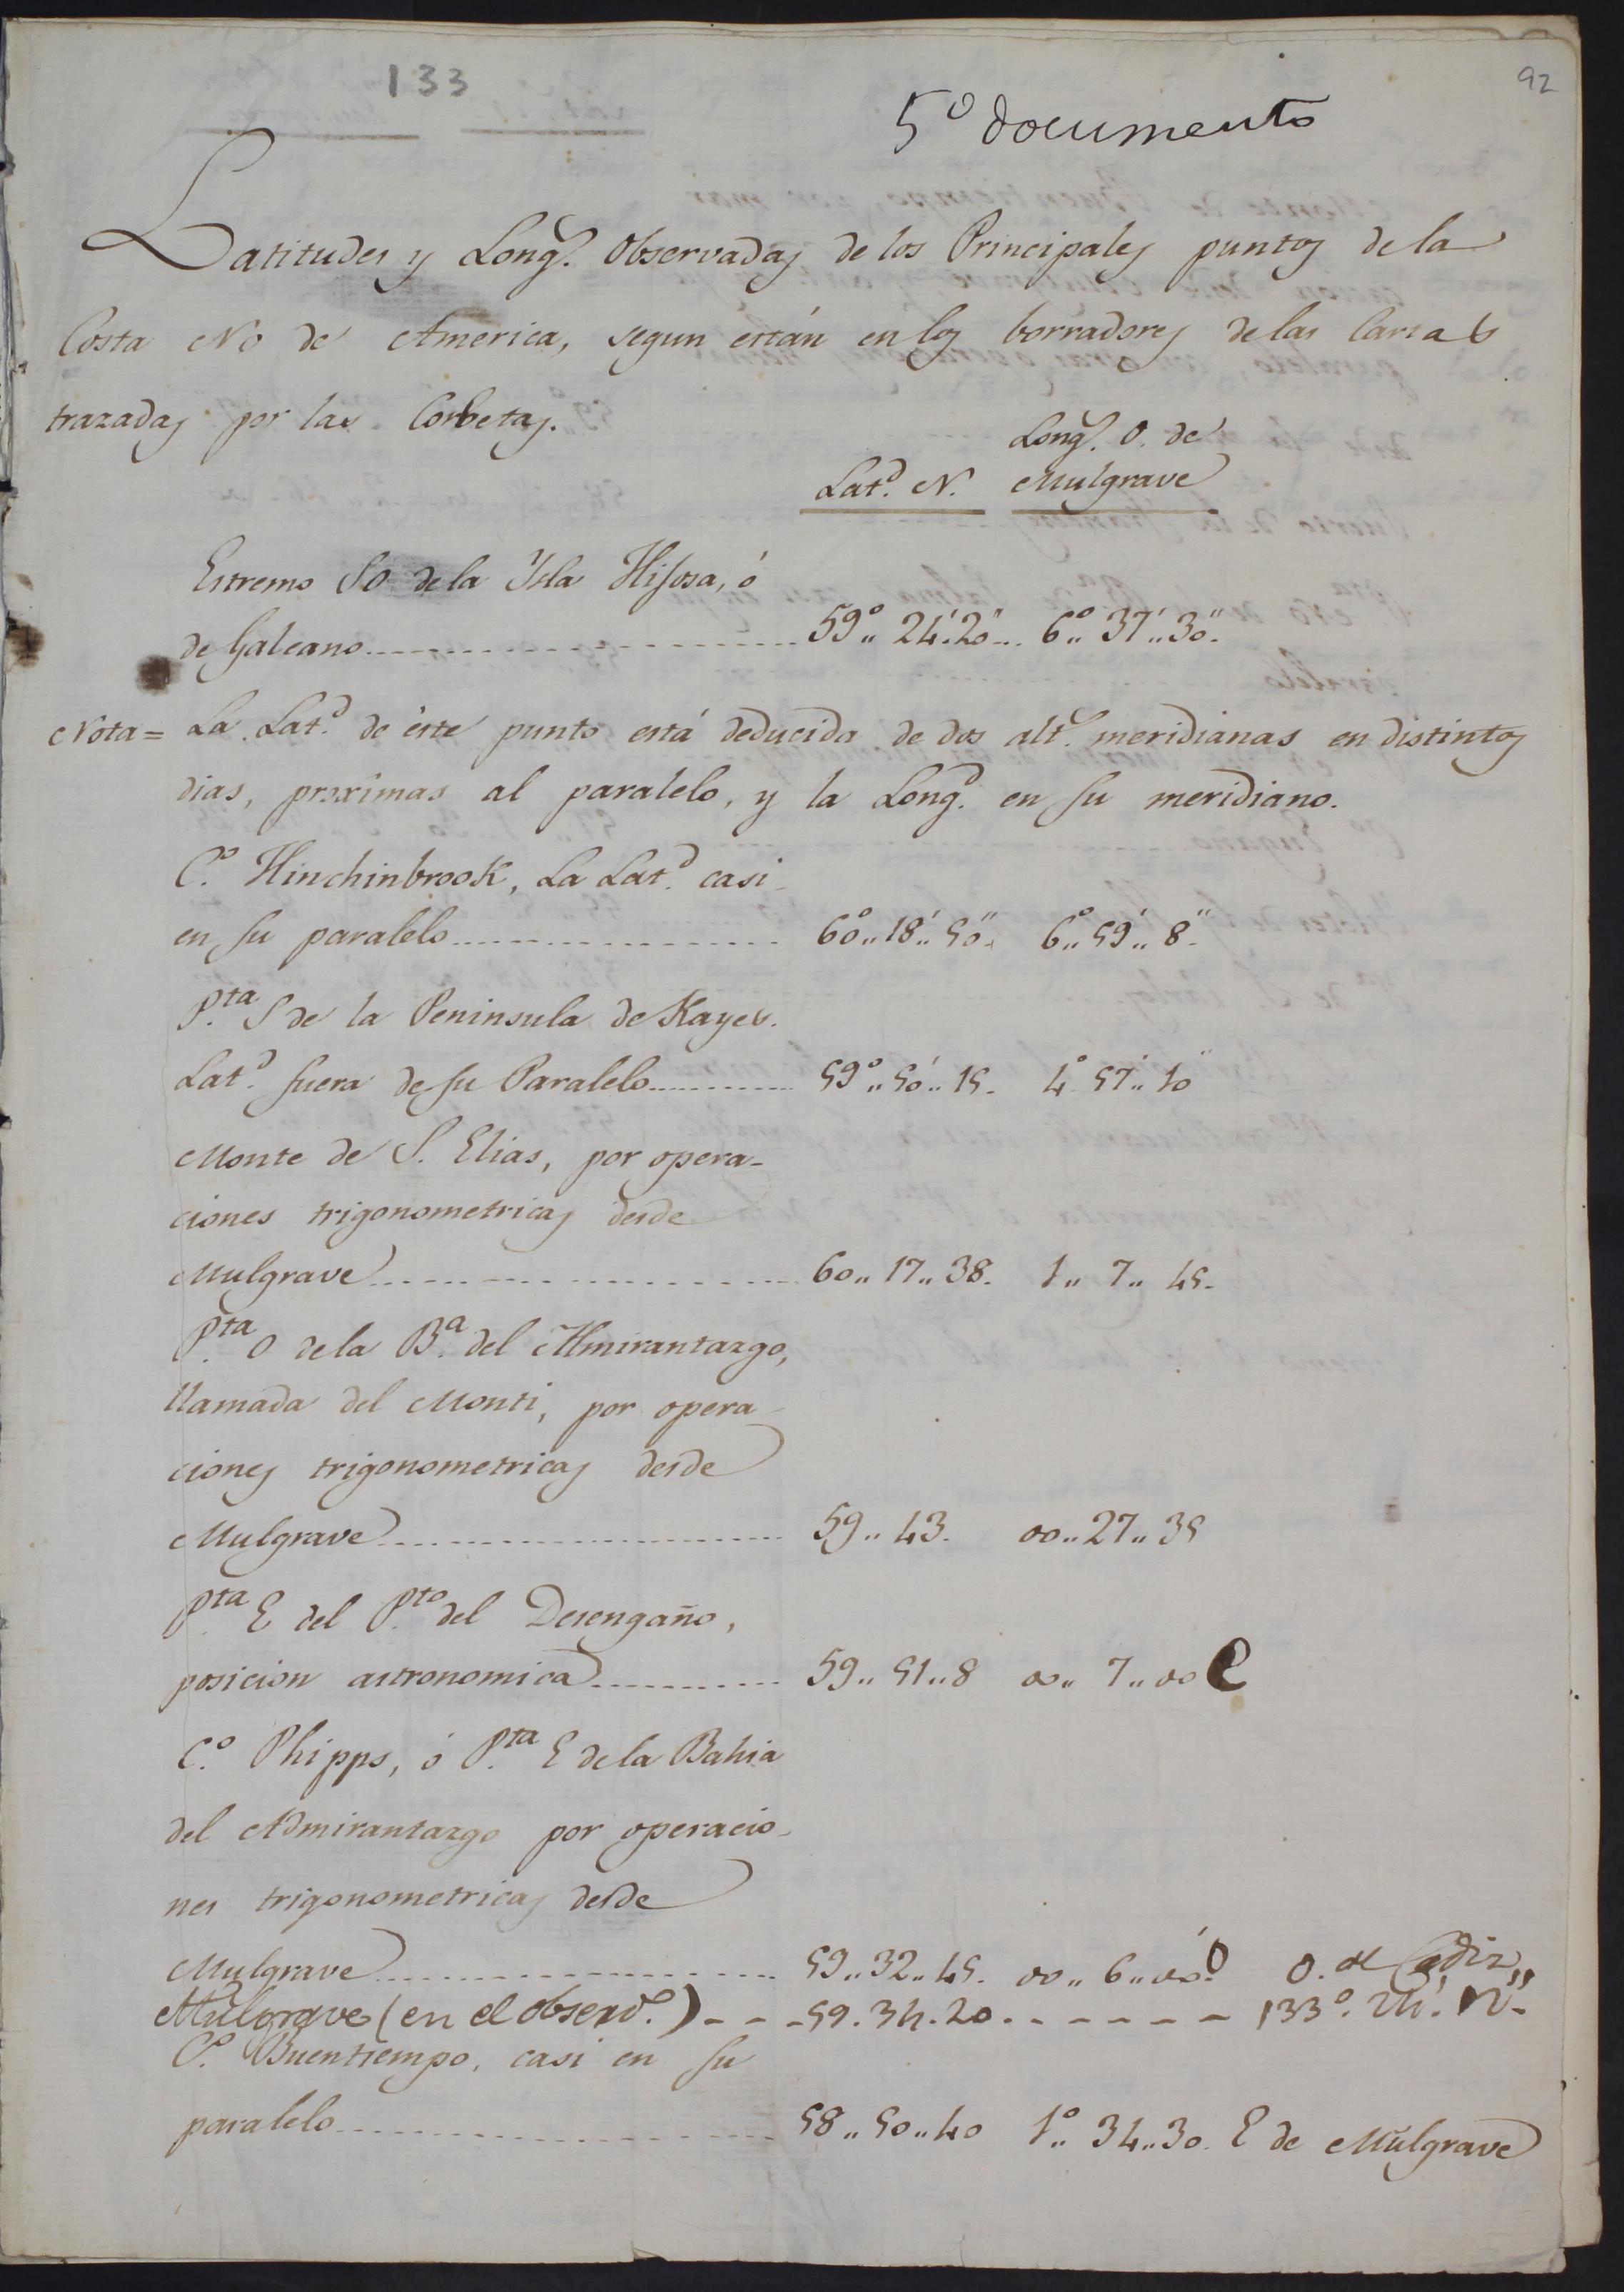 133
92
5º documento
Latitudes y Longs. Observadas de los Principales puntos de la
Costa NO de America, segun están en los borradores de las Cartas
trazadas por las Corbetas.
Longs. O. de
Latd. N. Mulgrave
Estremo SO de la Ysla Hijosa, ó
de Galeano 59º.. 24'.. 20" 6º.. 37'.. 30"
Nota = La Latd. de éste punto está deducida de dos alts. meridianas en distintos
dias, proximas al paralelo, y la Longd. en su meridiano.
Cº. Hinchinbrook, La Latd. casi
en su paralelo 60º.. 18'.. 50" 6º.. 59'.. 8"
Pta. S de la Peninsula de Kayes.
Latd. fuera de su Paralelo 59º.. 50'.. 15 4º 57'.. 10"
Monte de S. Elias, por opera-
ciones trigonometricas desde
Mulgrave 60.. 17.. 38. 1.. 7.. 45.
Pta. O de la Ba. del Almirantazgo,
llamada del Monti, por opera-
ciones trigonometricas desde
Mulgrave 59.. 43. 00.. 27.. 35
Pta. E del Pto. del Desengaño,
posicion astronomica 59.. 51.. 8 00.. 7.. 00 E
Cº. Phipps, ó Pta. E de la Bahia
del Admirantazgo por operacio-
nes trigonometricas desde
Mulgrave 59.. 32.. 45. 00.. 6.. 00. O O. de Cadiz
Mulgrave (en el observº.) - - - 59. 34. 20 - - - - - - 133º. 24'. 12"
Cº. Buentiempo, casi en su
paralelo 58.. 50.. 40 1º.. 34.. 30. E de Mulgrave